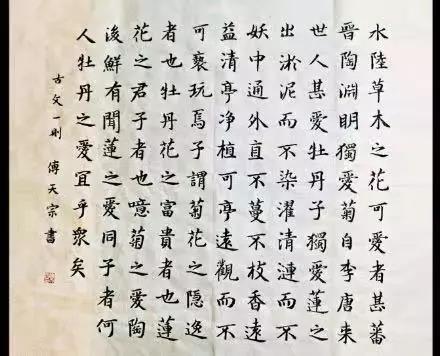 水陸草木之花可愛者甚蕃
晉陶淵明獨愛菊自李唐来
世人甚愛牡丹予獨愛蓮之
出淤泥而不染濯清漣而不
妖中通外直不蔓不枝香遠
益清亭净植可亭遠觀而不
可褻玩焉予謂菊花之隱逸
者也牡丹花之富貴者也蓮
花之君子者也噫菊之愛陶
後鮮有聞蓮之愛同予者何
人牡丹之愛宜乎衆矣
古文一则 傅天宗書